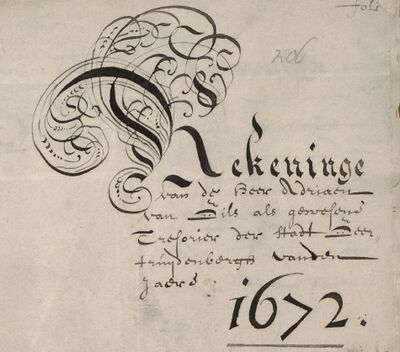 folo
Rekeninge
van de Heer Adriaen
van Dils als gewesene
Tresorier der Stadt Geer
truijdenbergh vanden
Jaere
1672.